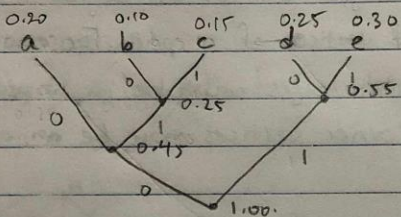 0.20 0.10 0.15 0.25 0.30
a b c d e
0 1 0 1
0.25 0.55
0 1
0.45 1
0
1.00.